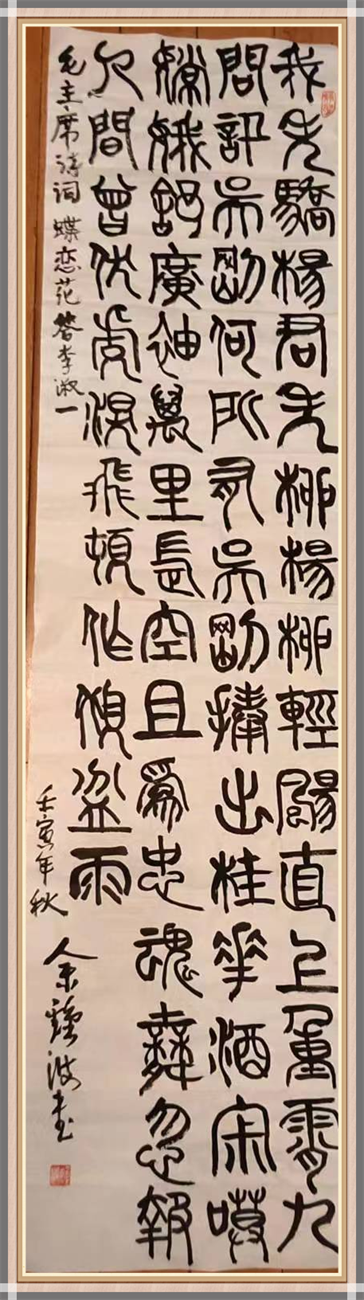 我失驕楊君失柳楊柳輕颺直上重霄九
問訊吳剛何所有吳剛捧出桂花酒寂寞
嫦娥舒廣袖萬里長空且為忠魂舞忽報
人間曾伏虎淚飛頓作傾盆雨
毛主席诗词 蝶恋花 答李淑一
壬寅年秋
余波书